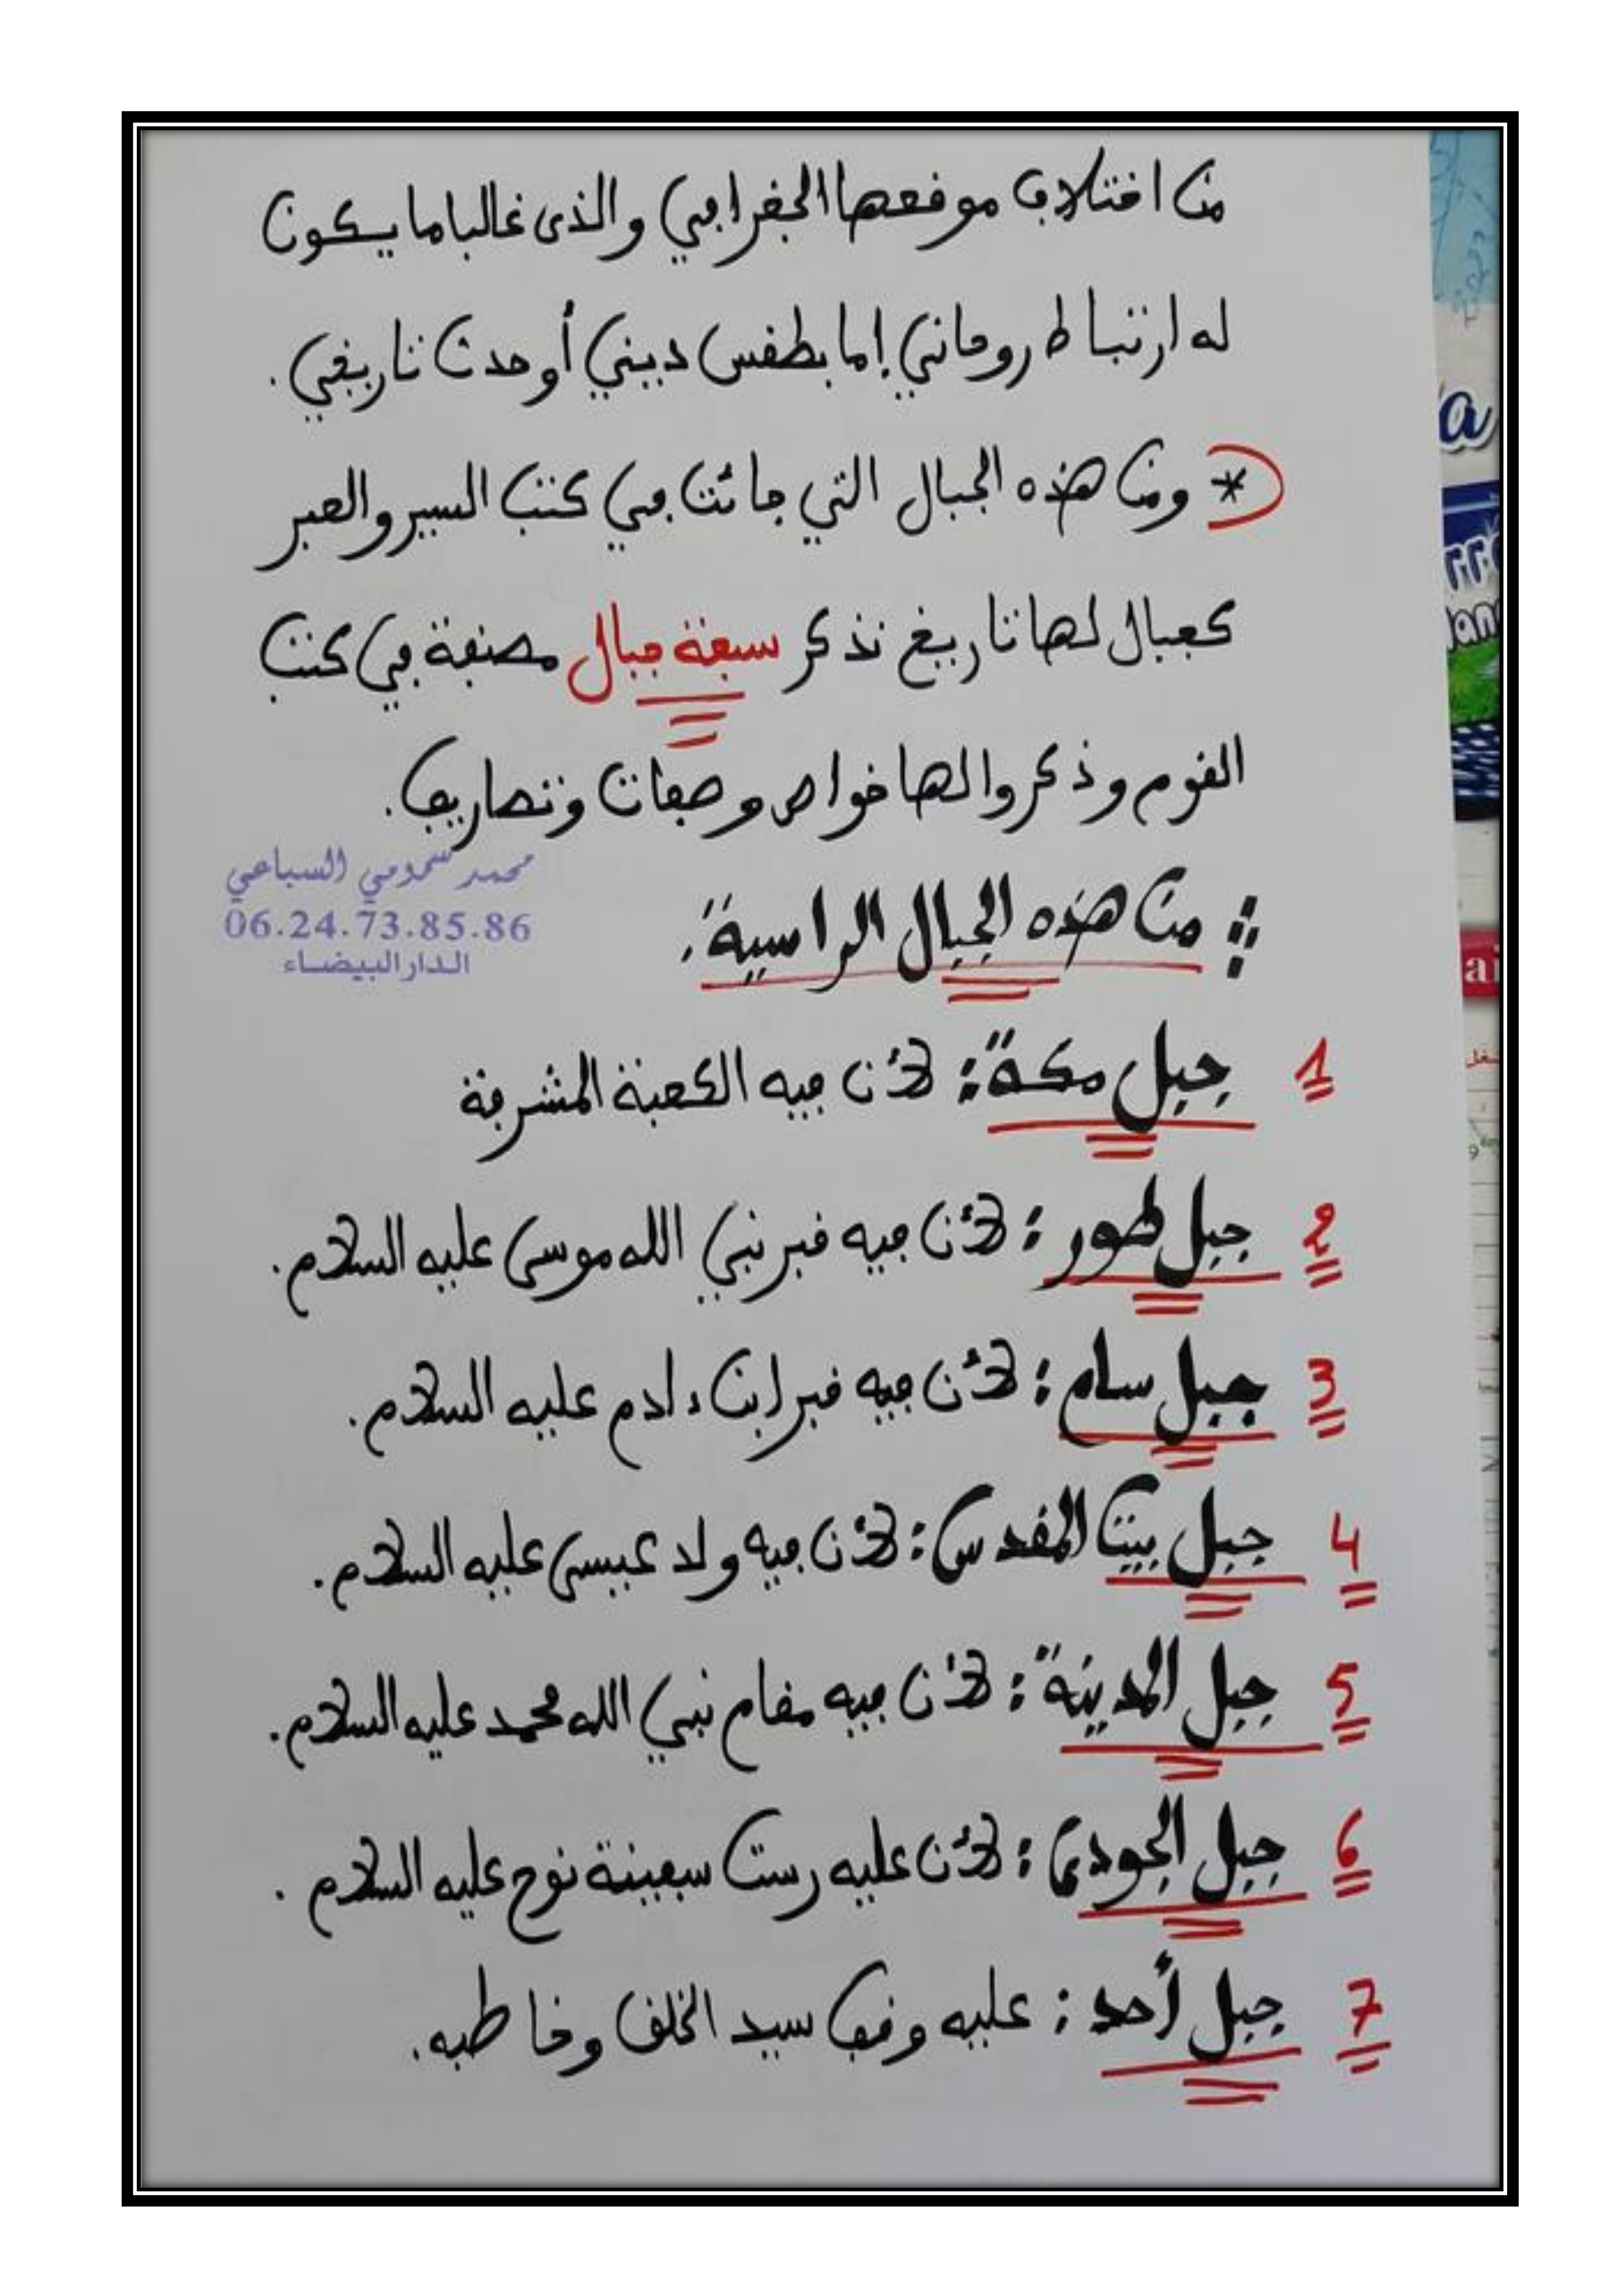 من اختلاف موقعها الجغرافي والذى غالبا ما يكون
له ارتباط روحاني إما بطقس ديني أو حدث تاريخي.
* ومن هذه الجبال التي جائت في كتب السير والعبر
كجبال لها تاريخ نذكر سبعة جبال مصنفة في كتب
القوم وذكروا لها خواص وصفات وتصاريف.
محمد سحومي السباعي
06.24.73.85.86
الدار البيضاء
من هذه الجبال الراسية.
1 جبل مكة: لأن فيه الكعبة المشرفة
2 جبل طور: لأن فيه قبر نبي الله موسى عليه السلام.
3 جبل سام: لأن فيه قبر ابن ءادم عليه السلام.
4 جبل بيت المقدس: لأن فيه ولد عيسى عليه السلام.
5 جبل المدينة: لأن فيه مقام نبي الله محمد عليه السلام.
6 جبل الجودي: لأن عليه رست سفينة نوح عليه السلام.
7 جبل أحد: عليه وقف سيد الخلق وخاطبه.